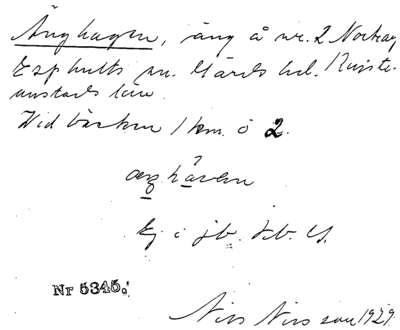 Änghagen, äng å nr. 2 Norra
Esphults sn. Gärds hd. Kristi-
anstads län.
Vid bäcken 1 km. ö 2.
æŋhāven
Ej i jb. Gb.
Nr 5345.
Nils Nilsson 1929.